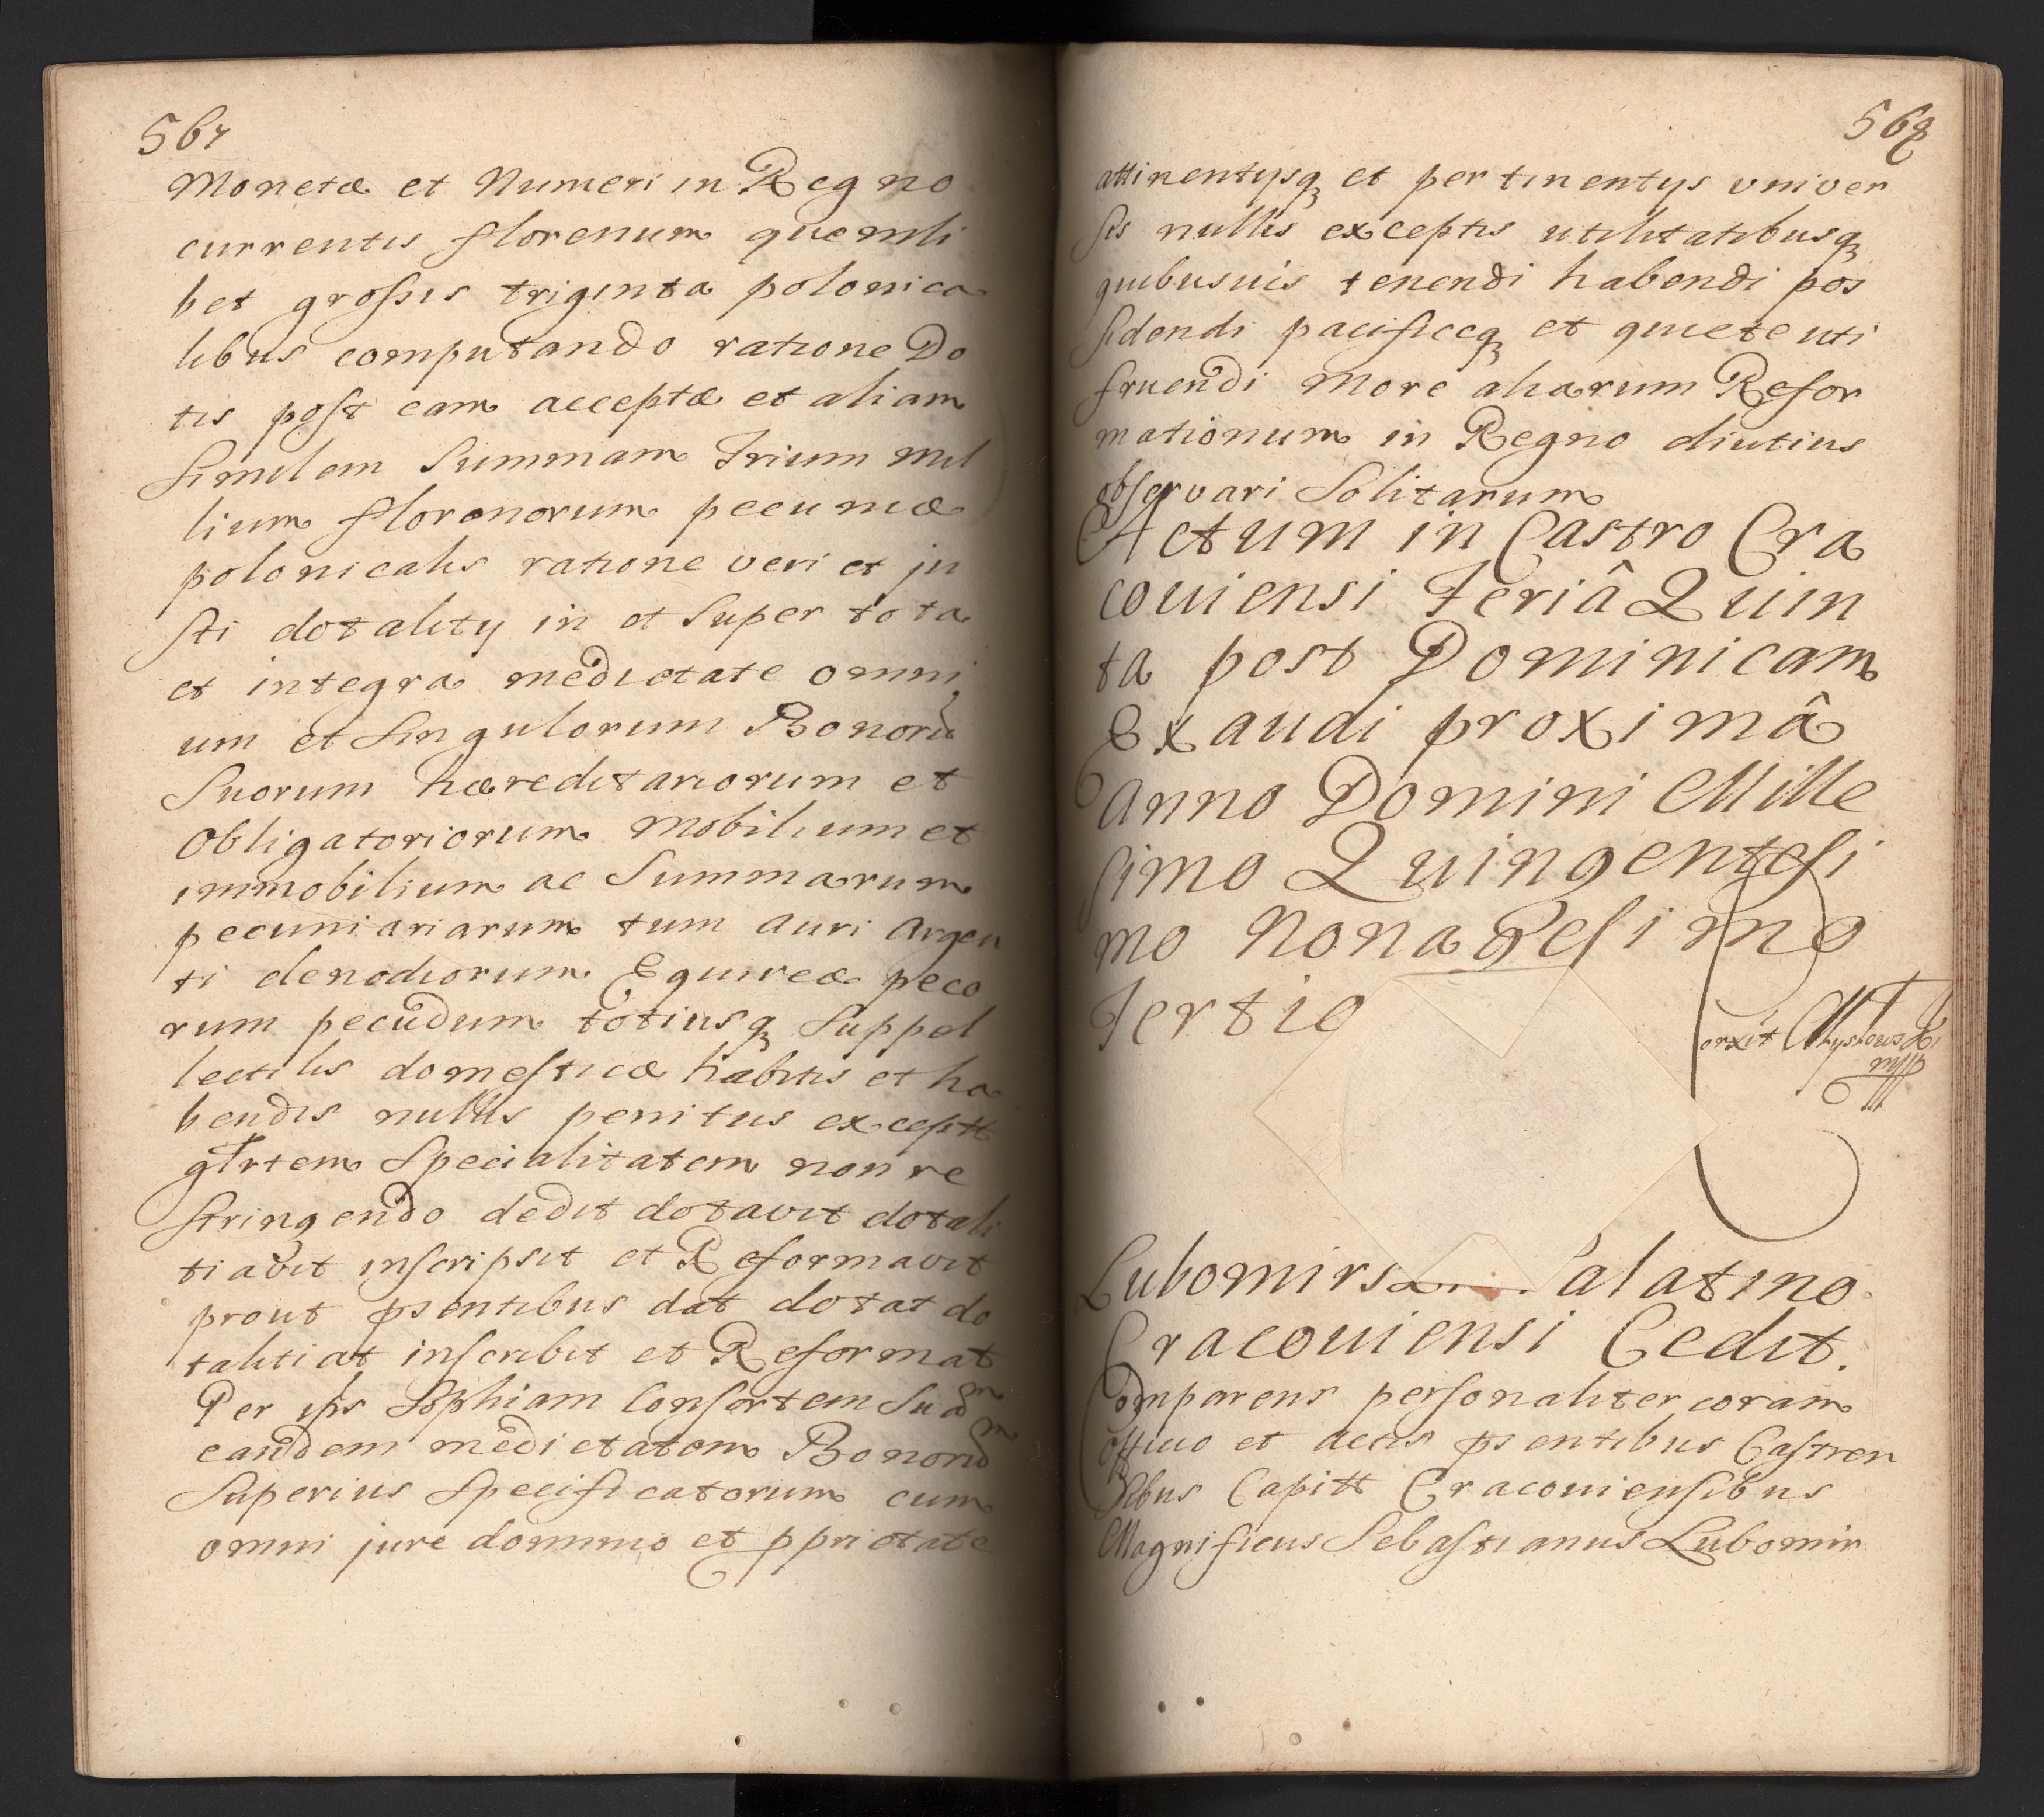 567
Monetæ et Numeri in Regno
currentis florenum quemli
bet grossis triginta polonica
libus computando ratione Do
tis post eam acceptæ et aliam
similem Summam Trium mil
lium florenorum pecuniæ
polonicalis ratione veri et ju
sti dotalitij in et super tota
et integra medietate omni
um et singulorum Bonorũ
Suorum hæreditariorum et
Obligatoriorum Mobilium et
immobilium ac Summarum
pecuniariarum tum auri Argen
ti clenodiorum Equireæ peco
rum pecudum totiusq suppel
lectilis domesticæ habitis et ha
bendis nullis penitus exceptt
Specialitatem non re
stringendo dedit dotavit dotali
tiavit inscripsit et Reformavit
prout psentibus dat dotat do
talitiat inscribit et Reformat
Per Sophiam Consortem Suam
eandem medietatem Bonorũ
Superius Specificatorum cum
omni jure dominio et pprietate
568
attinentijsq et pertinentijs vniver
sis nullis exceptis utilitatibusq
quibusuis tenendi habendi pos
sidendi pacificeq et quiete uti
fruendi More aliarum Refor
mationum in Regno diutius
observari Solitarum
Actum in Castro Cra
couiensi Feriâ Quin
ta post Dominicam
Exaudi proximâ
Anno Domini Mille
simo Quingentesi
mo Nonagesimo
Tertio
Lubomirs Palatino
Cracouiensi Cedit.
Comparens personaliter coram
Officio et actis psentibus Castren
sibus Capitt Cracouiensibus
Magnificus Sebastianus Lubomir